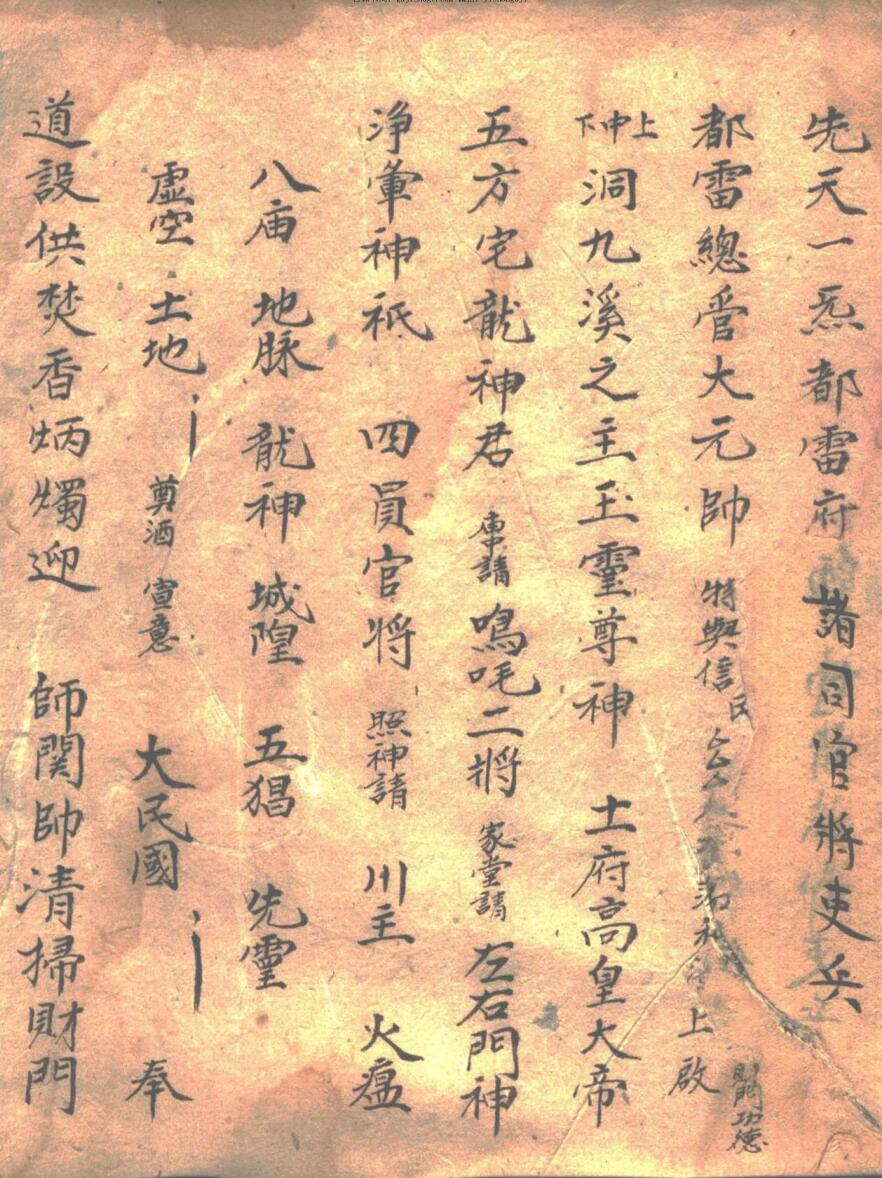 先天一炁都雷府諸司官將吏兵
都雷總管大元帥 特與信民 上啟 財門功德
上中下洞九溪之主玉靈尊神 土府高皇大帝
五方宅龍神君 庫中請 鳴吒二将 家堂請 左右門神
净軍神祇 四員官将 照神請 川主 火瘟
八庙 地脉 龍神 城隍 五猖 先靈
虛空 土地 奠酒 宣意 大民國 奉
道設供焚香炳燭迎 師関帥清掃財門